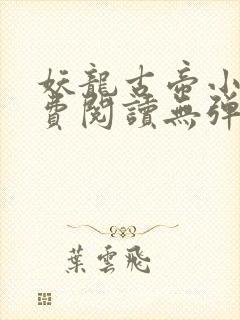 妖龍古帝小
費閱讀無彈
葉雲飛